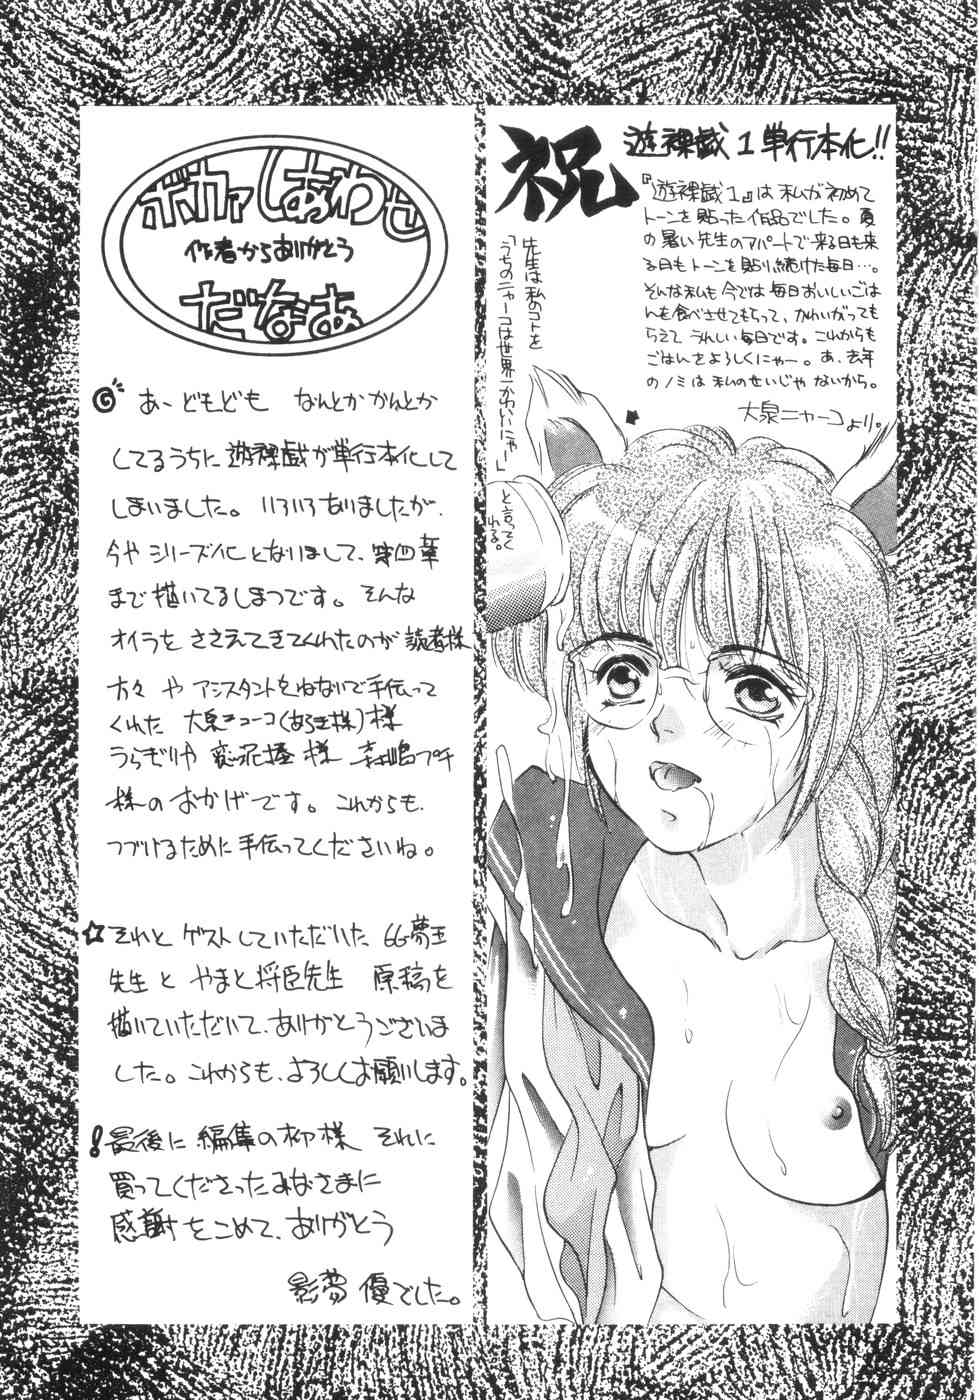 祝
遊裸戯1単行本化!!
『遊裸戯1』は私が初めて
トーンを貼った作品でした。夏
の暑い先生のアパートで来る日も来
る日もトーンを貼り続けた毎日…。
そんな私も今では毎日おいしいごは
んを食べさせてもらって、かわいがっても
らえてうれしい毎日です。これからも
ごはんをよろしくにゃー。あ、去年
のノミは私のせいじゃないから。
大泉ニャーコより。
先生は私のコトを
「うちのニャーコは世界一かわいいにゃー」
と言ってく
れる。
ボカァしあわせ
作者からありがとう
だなあ
あ、どもども なんとかかんとか
してるうちに遊裸戯が単行本化して
しまいました。いろいろありましたが、
今やシリーズ化となりまして、第四華
まで描いてるしまつです。そんな
オイラをささえてきてくれたのが読者様
方々やアシスタントをねないで手伝って
くれた 大泉 様
うらぎりや 様 プチ
様のおかげです。これからも、
つづけるために手伝ってくださいね。
☆それとゲストしていただいた GG夢王
先生と やまと将臣先生 原稿を
描いていただいて、ありがとうございま
した。これからも、よろしくお願いします。
!最後に編集の 様 それに
買ってくださったみなさまに
感謝をこめて、ありがとう
影夢 優でした。